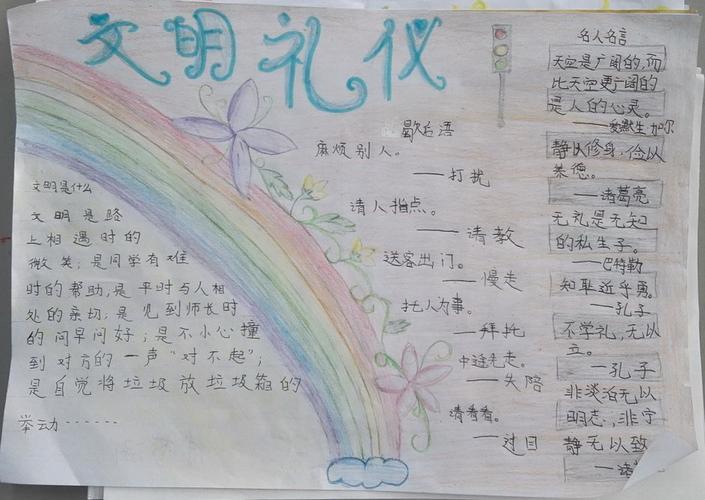 文明礼仪
文明是什么
文明是路
上相遇时的
微笑；是同学有难
时的帮助；是平时与人相
处的亲切；是见到师长时
的问早问好；是不小心撞
到对方的一声“对不起”；
是自觉将垃圾放垃圾箱的
举动……
歇后语
麻烦别人。
——打扰
请人指点。
——请教
送客出门。
——慢走
托人为事。
——拜托
中途先走。
——失陪
请看看。
——过目
名人名言
天空是广阔的，而
比天空更广阔的
是人的心灵。
静以修身，俭以
养德。
——诸葛亮
无礼是无知
的私生子。
——巴特勒
知耻近乎勇。
——孔子
不学礼，无以
立。
——孔子
非淡泊无以
明志，非宁
静无以致